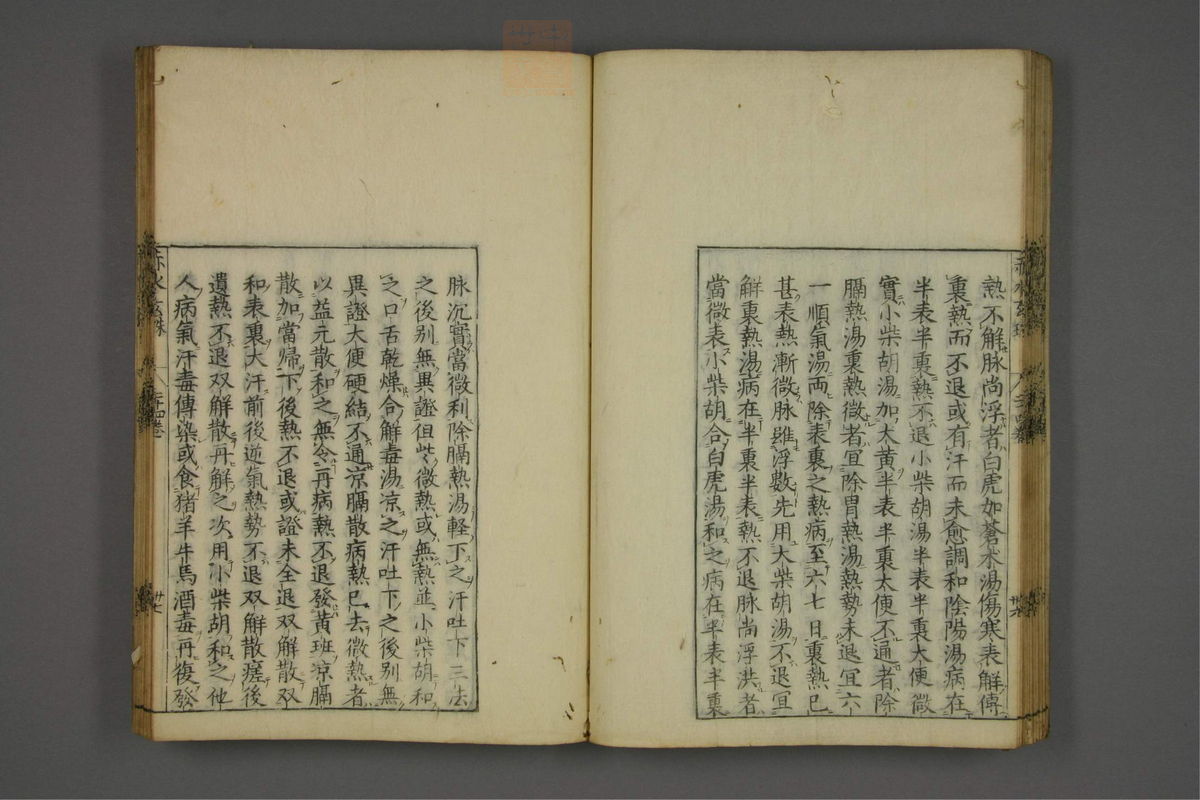 熱不解脉尚浮者白虎加蒼朮湯傷寒表解傳
裏熱而不退或有汗而未愈調和陰陽湯病在
半表半裏熱不退小柴胡湯半表半裏大便微
實小柴胡湯加大黄半表半裏大便不通者除
膈熱湯裏熱微者宜除胃熱湯熱勢未退宜六
一順氣湯両除表裏之熱病至六七日裏熱已
甚表熱漸微脉雖浮數先用大柴胡湯不退宜
解裏熱湯病在半裏半表熱不退脉尚浮洪者
當微表小柴胡合白虎湯和之病在半表半裏
脉沉實當微利除膈熱湯軽下之汗吐下三法
之後别無異證但些微熱或無熱並小柴胡和
之口舌乾燥合解毒湯凉之汗吐下之後别無
異證大便硬結不通凉膈散病熱已去微熱者
以益元散和之無令再病熱不退發黄班凉膈
散加當帰下後熱不退或證未全退双解散双
和表裏大汗前後逆氣熱勢不退双解散瘥後
遺熱不退双解散再解之次用小柴胡和之他
人病氣汗毒傳染或食猪羊牛馬酒毒再復發
赤水玄珠
廿七